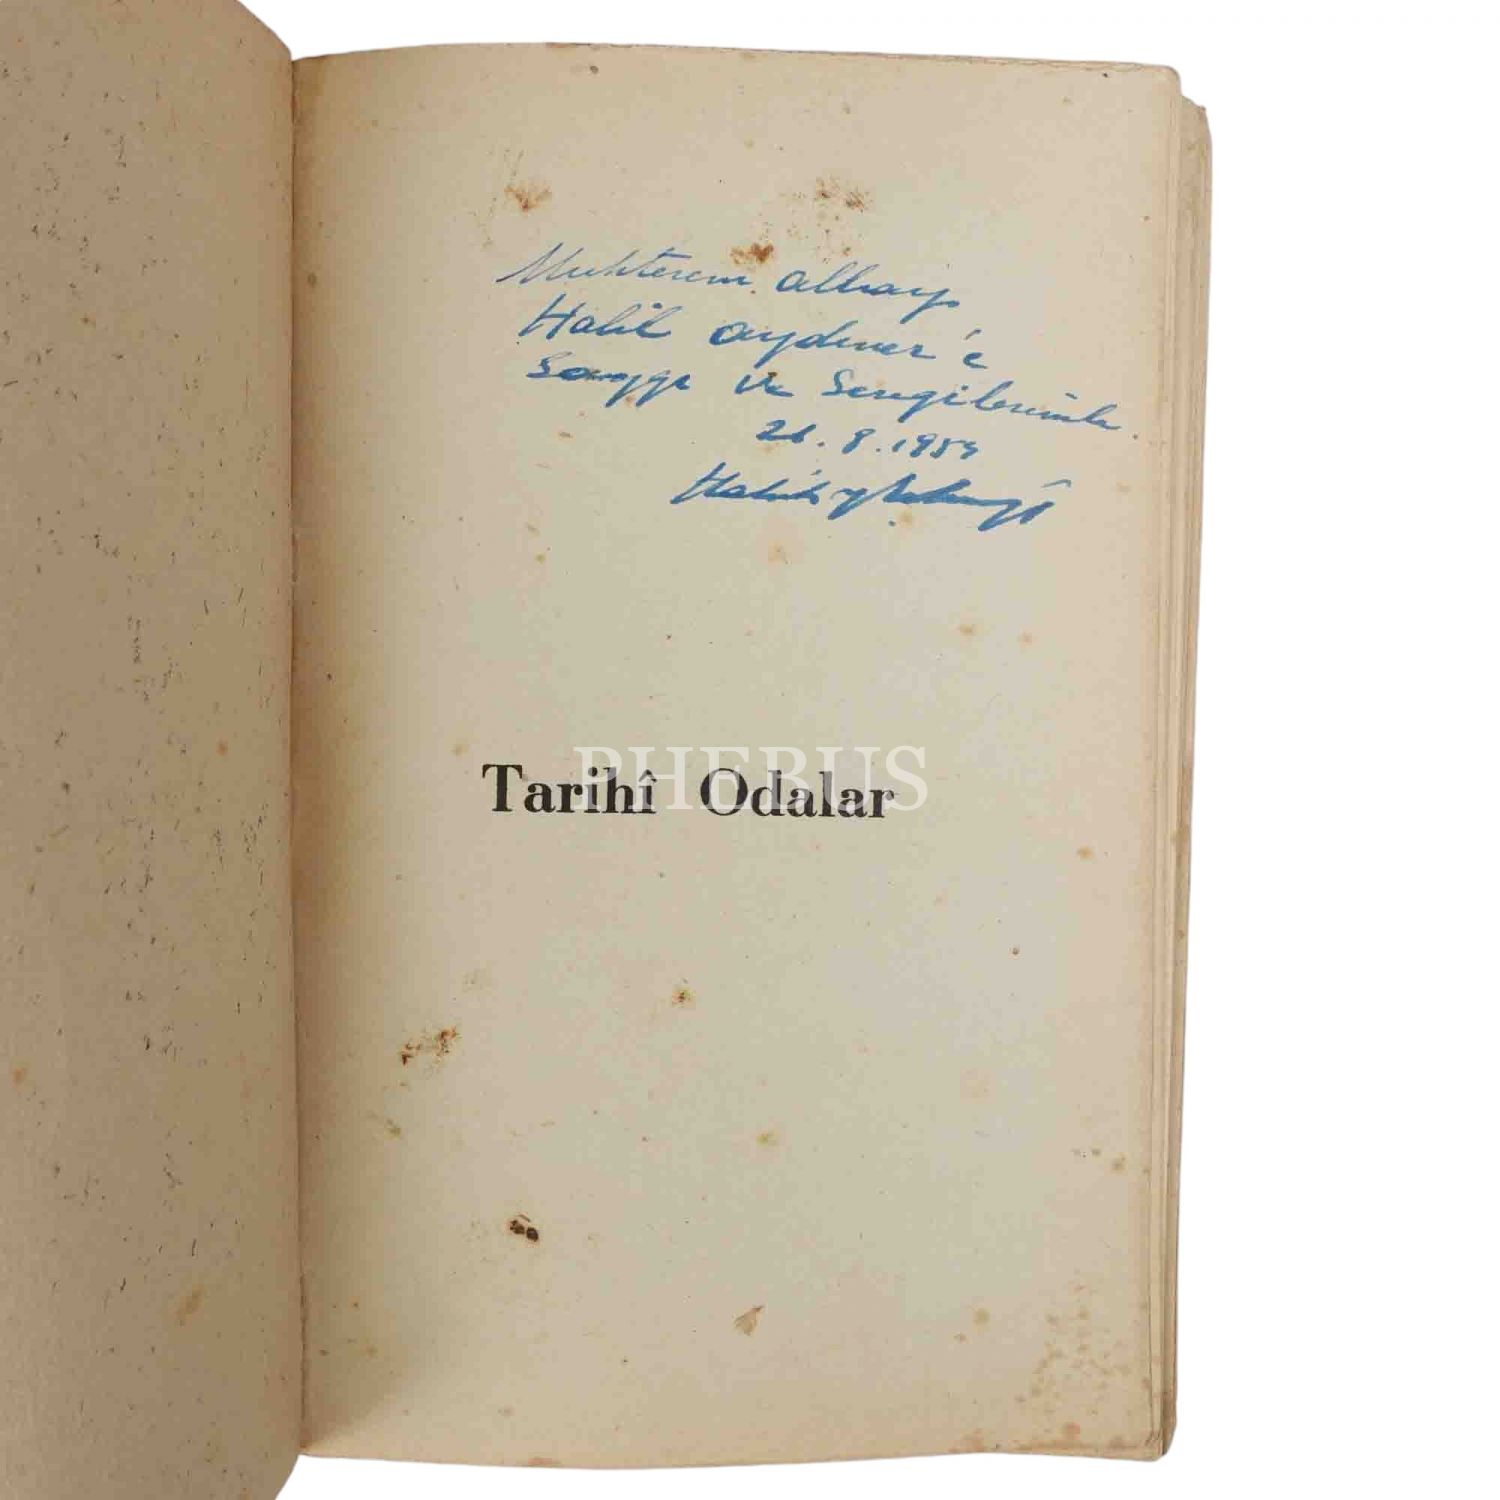 Muhterem albay
Halil aydıner'e
Saygı ve Sevgilerimle.
8.195
Halûk
PHEBUS
Tarihî Odalar